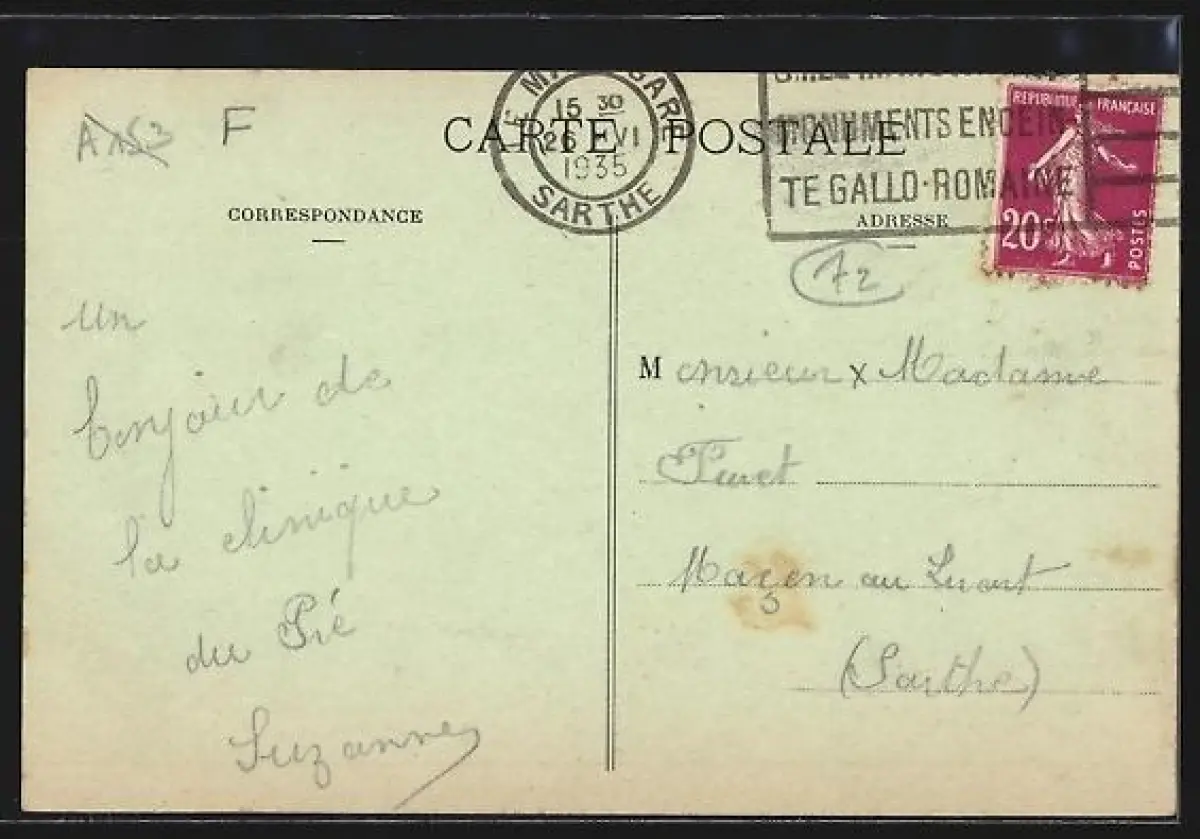 A 153 F
LE MANS GARE
15 30
26 VI
1935
SARTHE
MONUMENTS ENCEIN
TE GALLO-ROMAINE
REPUBLIQUE FRANÇAISE
20c
POSTES
CARTE POSTALE
CORRESPONDANCE
ADRESSE
72
un
bonjour de
la clinique
du Pré
Suzanne
Monsieur x Madame
Furet
Maçon au Luart
(Sarthe)